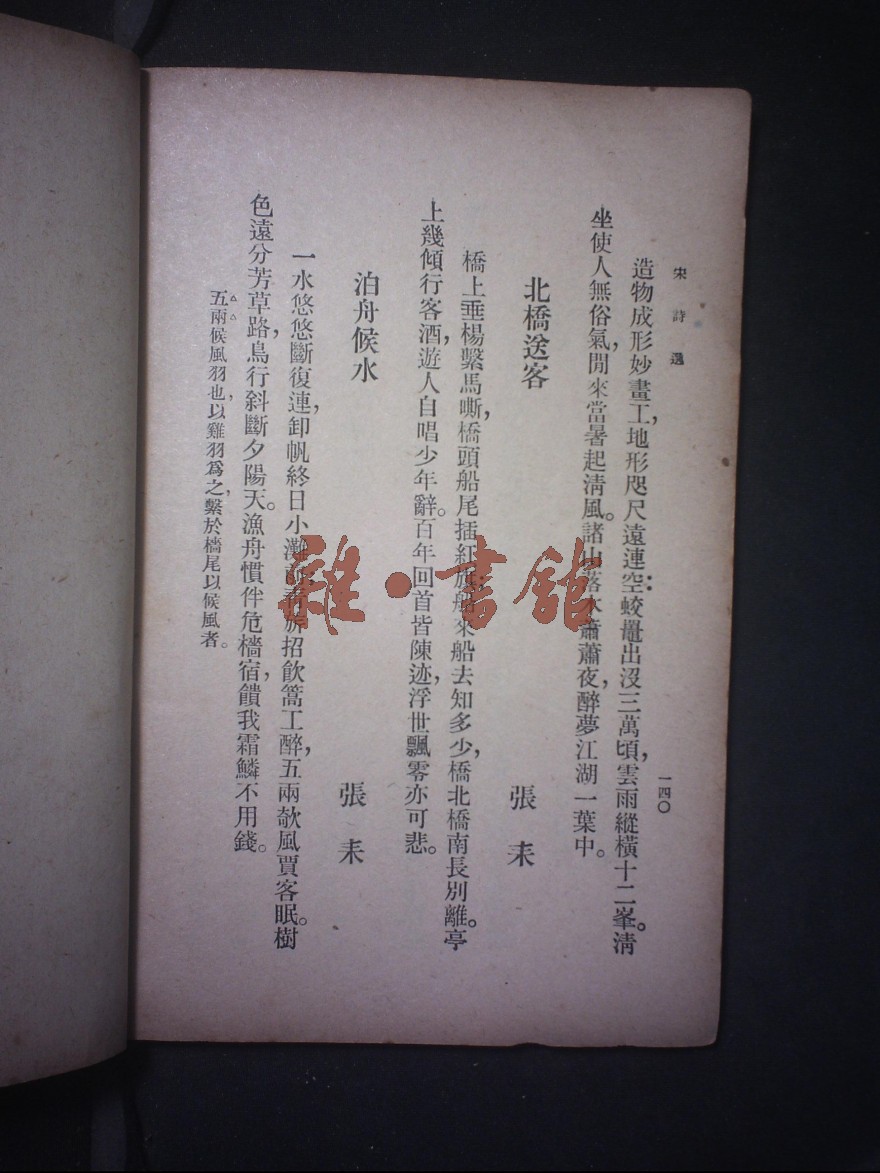 宋詩選
一四〇
造物成形妙畫工，地形咫尺遠連空：蛟鼉出沒三萬頃，雲雨縱橫十二峯。淸
坐使人無俗氣，閒來當暑起淸風。諸山落木蕭蕭夜，醉夢江湖一葉中。
北橋送客
張耒
橋上垂楊繫馬嘶，橋頭船尾插紅旗；船來船去知多少，橋北橋南長別離。亭
上幾傾行客酒，遊人自唱少年辭。百年回首皆陳迹，浮世飄零亦可悲。
泊舟候水
張耒
一水悠悠斷復連，卸帆終日小灘 招飲篙工醉，五兩欹風賈客眠。樹
色遠分芳草路，鳥行斜斷夕陽天。漁舟慣伴危檣宿，饋我霜鱗不用錢。
五兩候風羽也，以雞羽爲之，繫於檣尾以候風者。
雜·書館